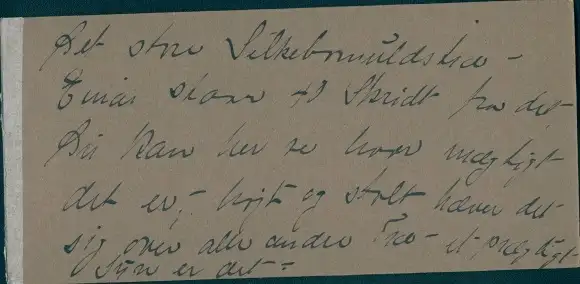 Det store Silkebomuldstræ -
Einar staar 40 Skridt fra det
Du kan her se hvor mægtigt
det er, - højt og stolt hæver det
sig over alle andre Træ - et prægtigt
Syn er det -